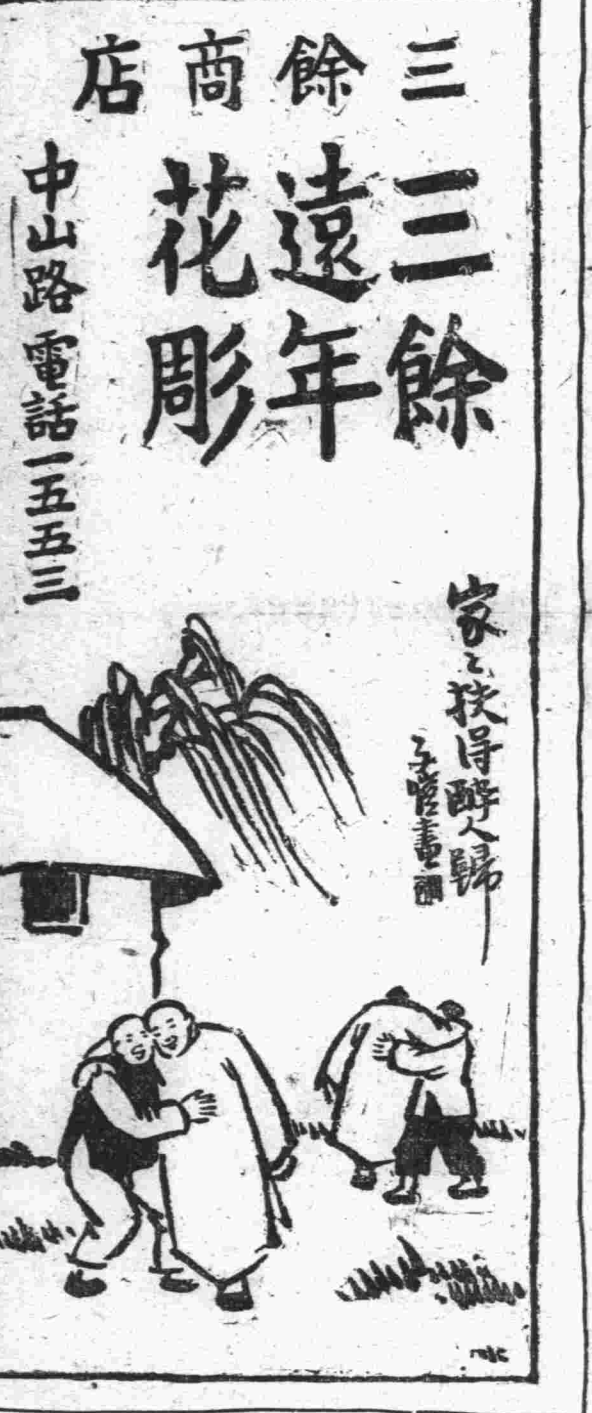 三餘商店
三餘
遠年
花彫
中山路電話一五五三
家々扶得醉人歸
子愷畫